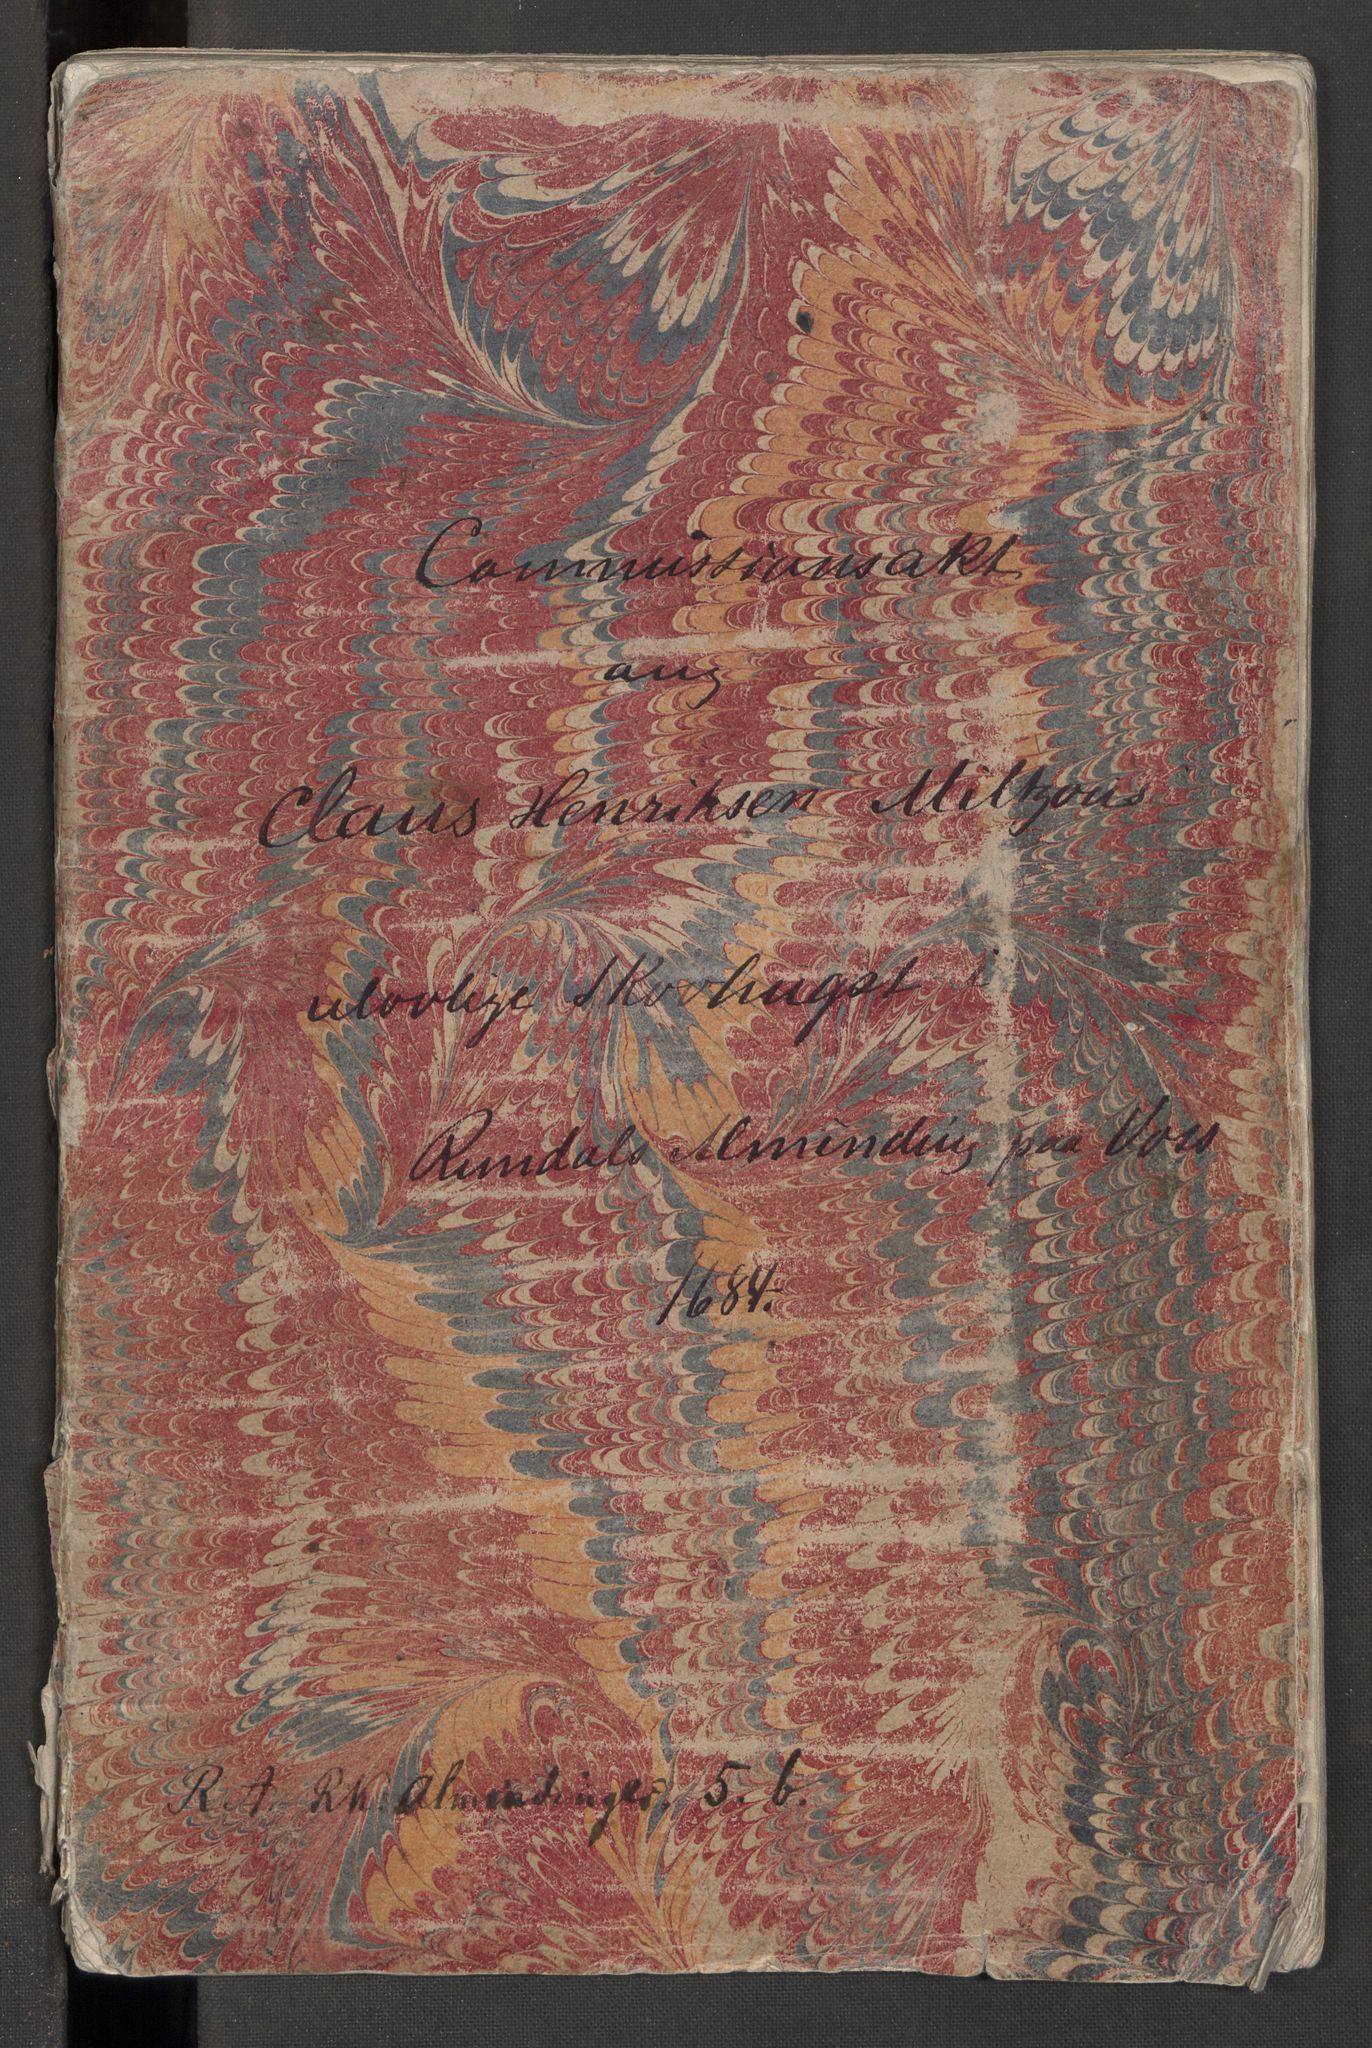 Commissionsakt
ang
Claus Henriksen Miltzous
ulovlige Skovhugst i
Rundals Alminding paa Voss
1684.
R. A. Rk. Almindinger. 5. b.